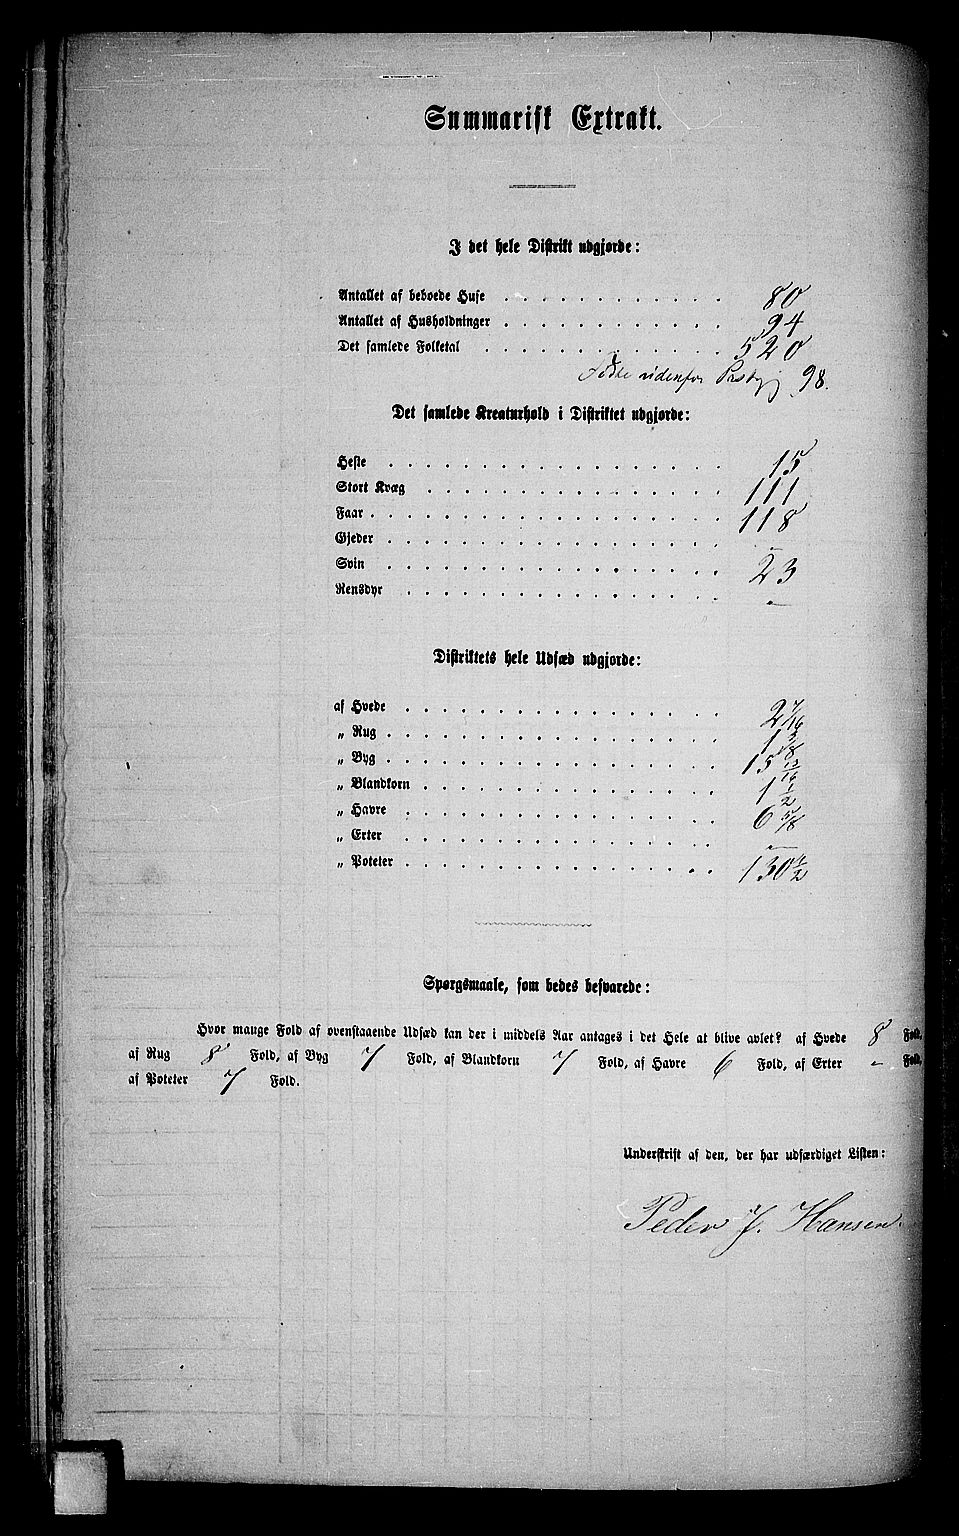 Summarisk Extrakt.
I det hele Distrikt udgjorde:
Antallet af beboede Huse . . . . . . . . . . . . 80
Antallet af Husholdninger . . . . . . . . . . . . 94
Det samlede Folketal . . . . . . . . . . . . . 520
Fødte udenfor 98.
Det samlede Kreaturhold i Distriktet udgjorde:
Heste . . . . . . . . . . . . . . . . . . 15
Stort Kvæg . . . . . . . . . . . . . . . . 111
Faar . . . . . . . . . . . . . . . . . . . 118
Gjeder . . . . . . . . . . . . . . . . . . -
Svin . . . . . . . . . . . . . . . . . . 23
Rensdyr . . . . . . . . . . . . . . . . . -
Distriktets hele Udsæd udgjorde:
af Hvede . . . . . . . . . . . . . . . . . 2 7/16
„ Rug . . . . . . . . . . . . . . . . . . 1 3/8
„ Byg . . . . . . . . . . . . . . . . . . 15 13/16
„ Blandkorn . . . . . . . . . . . . . . . . 1 1/2
„ Havre . . . . . . . . . . . . . . . . . 6 5/8
„ Erter . . . . . . . . . . . . . . . . . -
„ Poteter . . . . . . . . . . . . . . . . . 130 1/2
Spørgsmaale, som bedes besvarede:
Hvor mange Fold af ovenstaaende Udsæd kan der i middels Aar antages i det Hele at blive avlet? af Hvede 8 Fold,
af Rug 8 Fold, af Byg 7 Fold, af Blandkorn 7 Fold, af Havre 6 Fold, af Erter - Fold,
af Poteter 7 Fold.
Underskrift af den, der har udfærdiget Listen:
Peder J. Hansen.